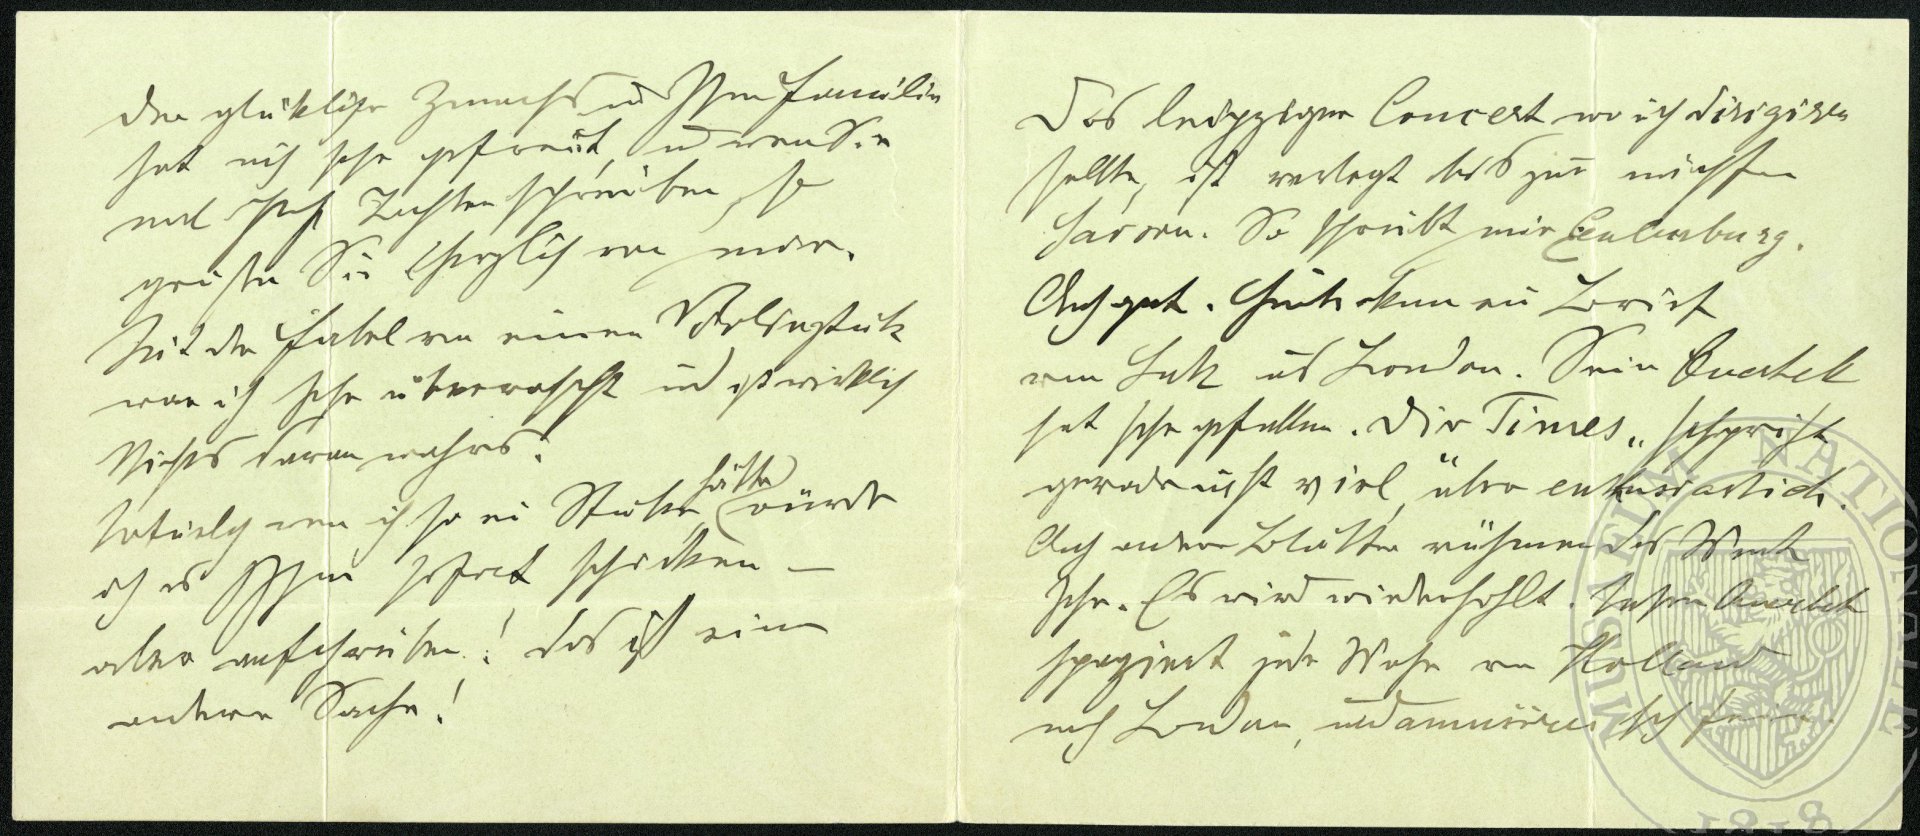 Der glückliche Zuwachs in Ihrer Familie
hat mich sehr gefreut, und wenn Sie
mal Ihrer Tochter schreiben, so
grüssen Sie herzlich von mir.
Mit der Fabel von einem Violinstück
war ich sehr überrascht und ist wirklich
Nichts daran wahres!
Natürlich wenn ich so ein Stück hätte würde
ich es Ihnen sofort schicken —
aber aufschreiben! das ist eine
andere Sache!
Das Leipziger Concert wo ich dirigiren
sollte, ist verlegt bis zur nächsten
Saison. So schreibt mir Eulenburg.
Auch gut. Heute kam ein Brief
von aus London. Sein Quartett
hat sehr gefallen. Die Times „ schreibt
gerade nicht viel, aber entusiastich.
Auch andere Blätter rühmen das Werk
sehr. Es wird wiederhohlt. Unser Quartett
spaziert jede Woche von Holland
nach London, und amusiren sich fein.
MUSAEUM NATIONALE
1818